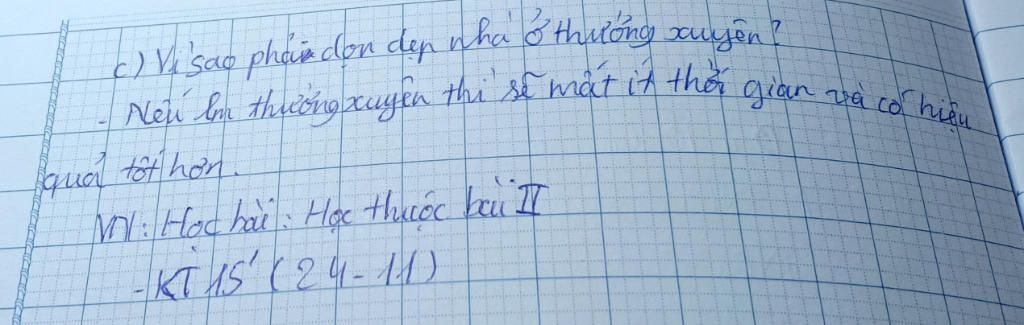 c) Vì sao phải dọn dẹp nhà ở thường xuyên?
- Nếu làm thường xuyên thì sẽ mất ít thời gian và có hiệu
quả tốt hơn.
VN: Học bài: Học thuộc bài II
- KT 15' (24-11)